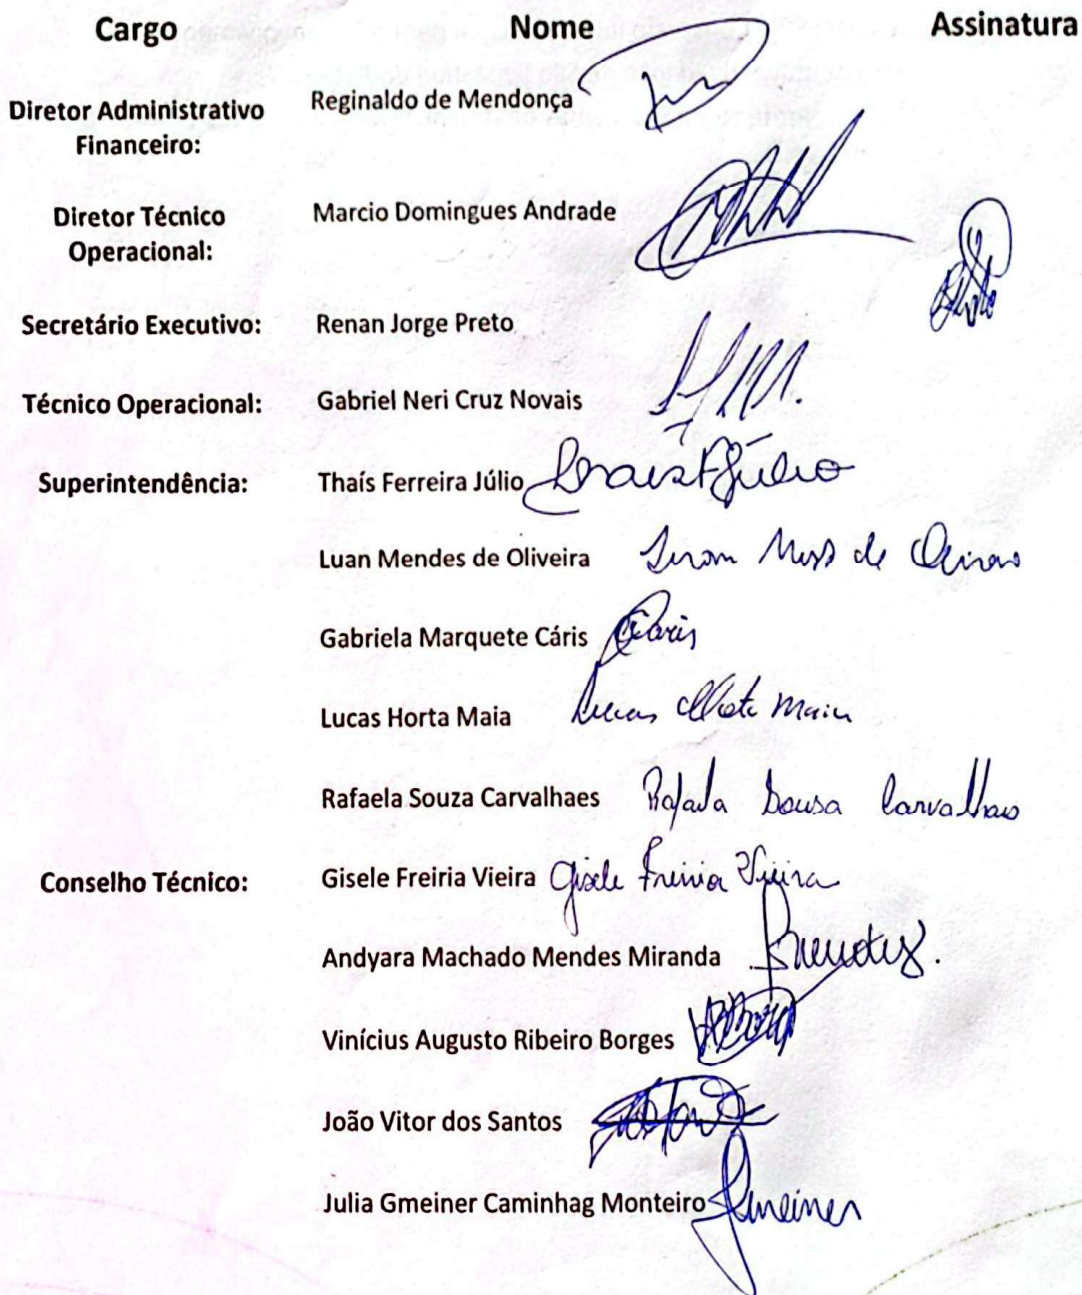 Cargo Nome Assinatura
Diretor Administrativo Financeiro: Reginaldo de Mendonça
Diretor Técnico Operacional: Marcio Domingues Andrade
Secretário Executivo: Renan Jorge Preto
Técnico Operacional: Gabriel Neri Cruz Novais
Superintendência: Thaís Ferreira Júlio
Luan Mendes de Oliveira
Gabriela Marquete Cáris Cáris
Lucas Horta Maia Lucas Horta Maia
Rafaela Souza Carvalhaes Rafaela Sousa Carvalhaes
Conselho Técnico: Gisele Freiria Vieira Gisele Freiria Vieira
Andyara Machado Mendes Miranda
Vinícius Augusto Ribeiro Borges
João Vitor dos Santos
Julia Gmeiner Caminhag Monteiro Gmeiner